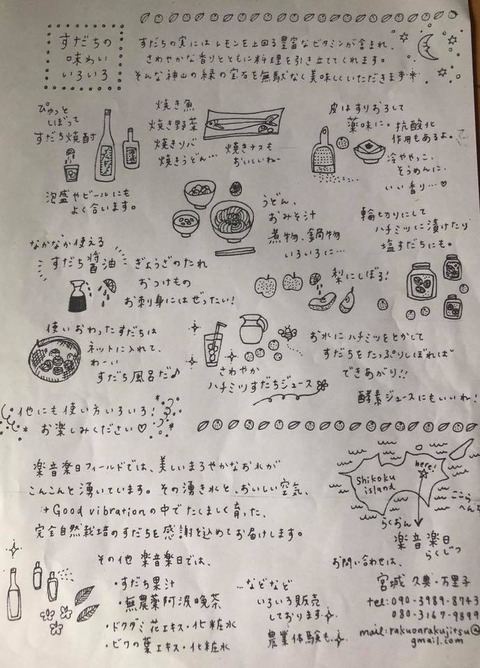 すだちの
味わい
いろいろ
すだちの実にはレモンを上回る豊富なビタミンが含まれ、
さわやかな香りとともに料理を引き立ててくれます。
そんな神山の緑の宝石を無駄なく美味しくいただきます
ぴゅっと
しぼって
すだち焼酎
泡盛やビールにも
よく合います。
焼き魚
焼き野菜
焼きソバ
焼きうどん…
焼きナスも
おいしいね〜
皮はすりおろして
薬味に。抗酸化
作用もあるよ。
冷ややっこ、
そうめんに、
いい香り…♡
うどん、
おみそ汁
煮物、鍋物
いろいろに…
輪切りにして
ハチミツに漬けたり
塩すだちにも。
なかなか使える
すだち醤油
ぎょうざのたれ
おつけもの
お刺身にはぜったい!
梨にしぼる!
使いおわったすだちは
ネットに入れて、
わーい
すだち風呂だ♪
さわやか
ハチミツすだちジュース
お水にハチミツをとかして
すだちをたっぷりしぼれば
できあがり!!
酵素ジュースにもいいね!
他にも使い方いろいろ!
お楽しみください♡
楽音楽日フィールドでは、美しいまろやかなお水が
こんこんと湧いています。その湧き水と、おいしい空気、
+Good vibrationの中でたくましく育った、
完全自然栽培のすだちを感謝を込めてお届けします。
Shikoku
island
here!
ここら
へん
らくおん
楽音楽日
らくじつ
その他 楽音楽日では、
・すだち果汁
・無農薬阿波晩茶
・ドクダミ花エキス・化粧水
・ビワの葉エキス・化粧水
…などなど
いろいろ販売
しております。
農業体験も…
お問い合わせは、
宮城 久美・万里子
tel:090-3989-8743
080-3167-9899
mail:rakuonrakujitsu@
gmail.com